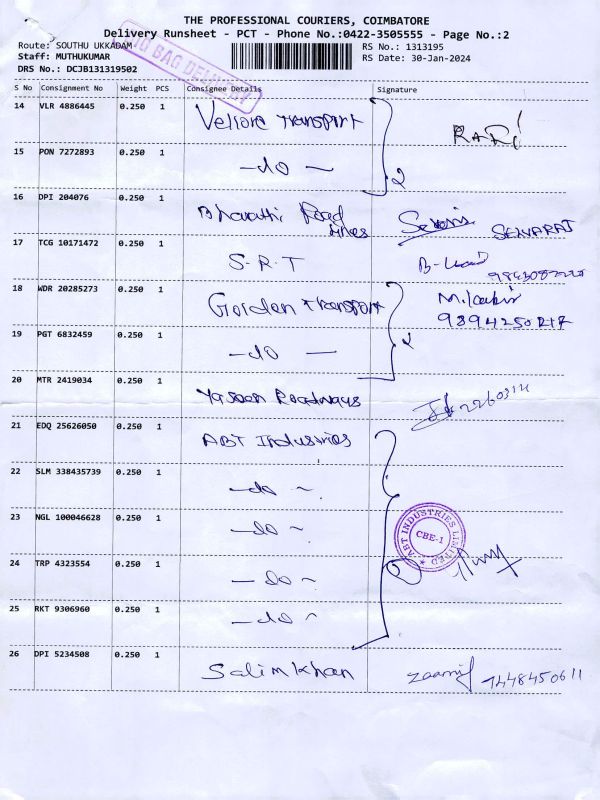 THE PROFESSIONAL COURIERS, COIMBATORE
Delivery Runsheet - PCT - Phone No.:0422-3505555 - Page No.:2
Route: SOUTHU UKKADAM
RS No.: 1313195
Staff: MUTHUKUMAR
RS Date: 30-Jan-2024
DRS No.: DCJB131319502
BAG DELIVERY
S No Consignment No Weight PCS Consignee Details Signature
14 VLR 4886445 0.250 1 Vellore Transport
15 PON 7272893 0.250 1 -do- 2
16 DPI 204076 0.250 1 Bharathi Road lines SELVARAJ
17 TCG 10171472 0.250 1 S.R.T
18 WDR 20285273 0.250 1 Golden Transport
19 PGT 6832459 0.250 1 -do- 2
20 MTR 2419034 0.250 1 Yasoon Roadways
21 EDQ 25626050 0.250 1 ABT Industries
22 SLM 338435739 0.250 1 -do-
23 NGL 100046628 0.250 1 -do-
ABT INDUSTRIES LIMITED
CBE-1
24 TRP 4323554 0.250 1 -do- 5
25 RKT 9306960 0.250 1 -do-
26 DPI 5234508 0.250 1 Salim Khan 7448450611